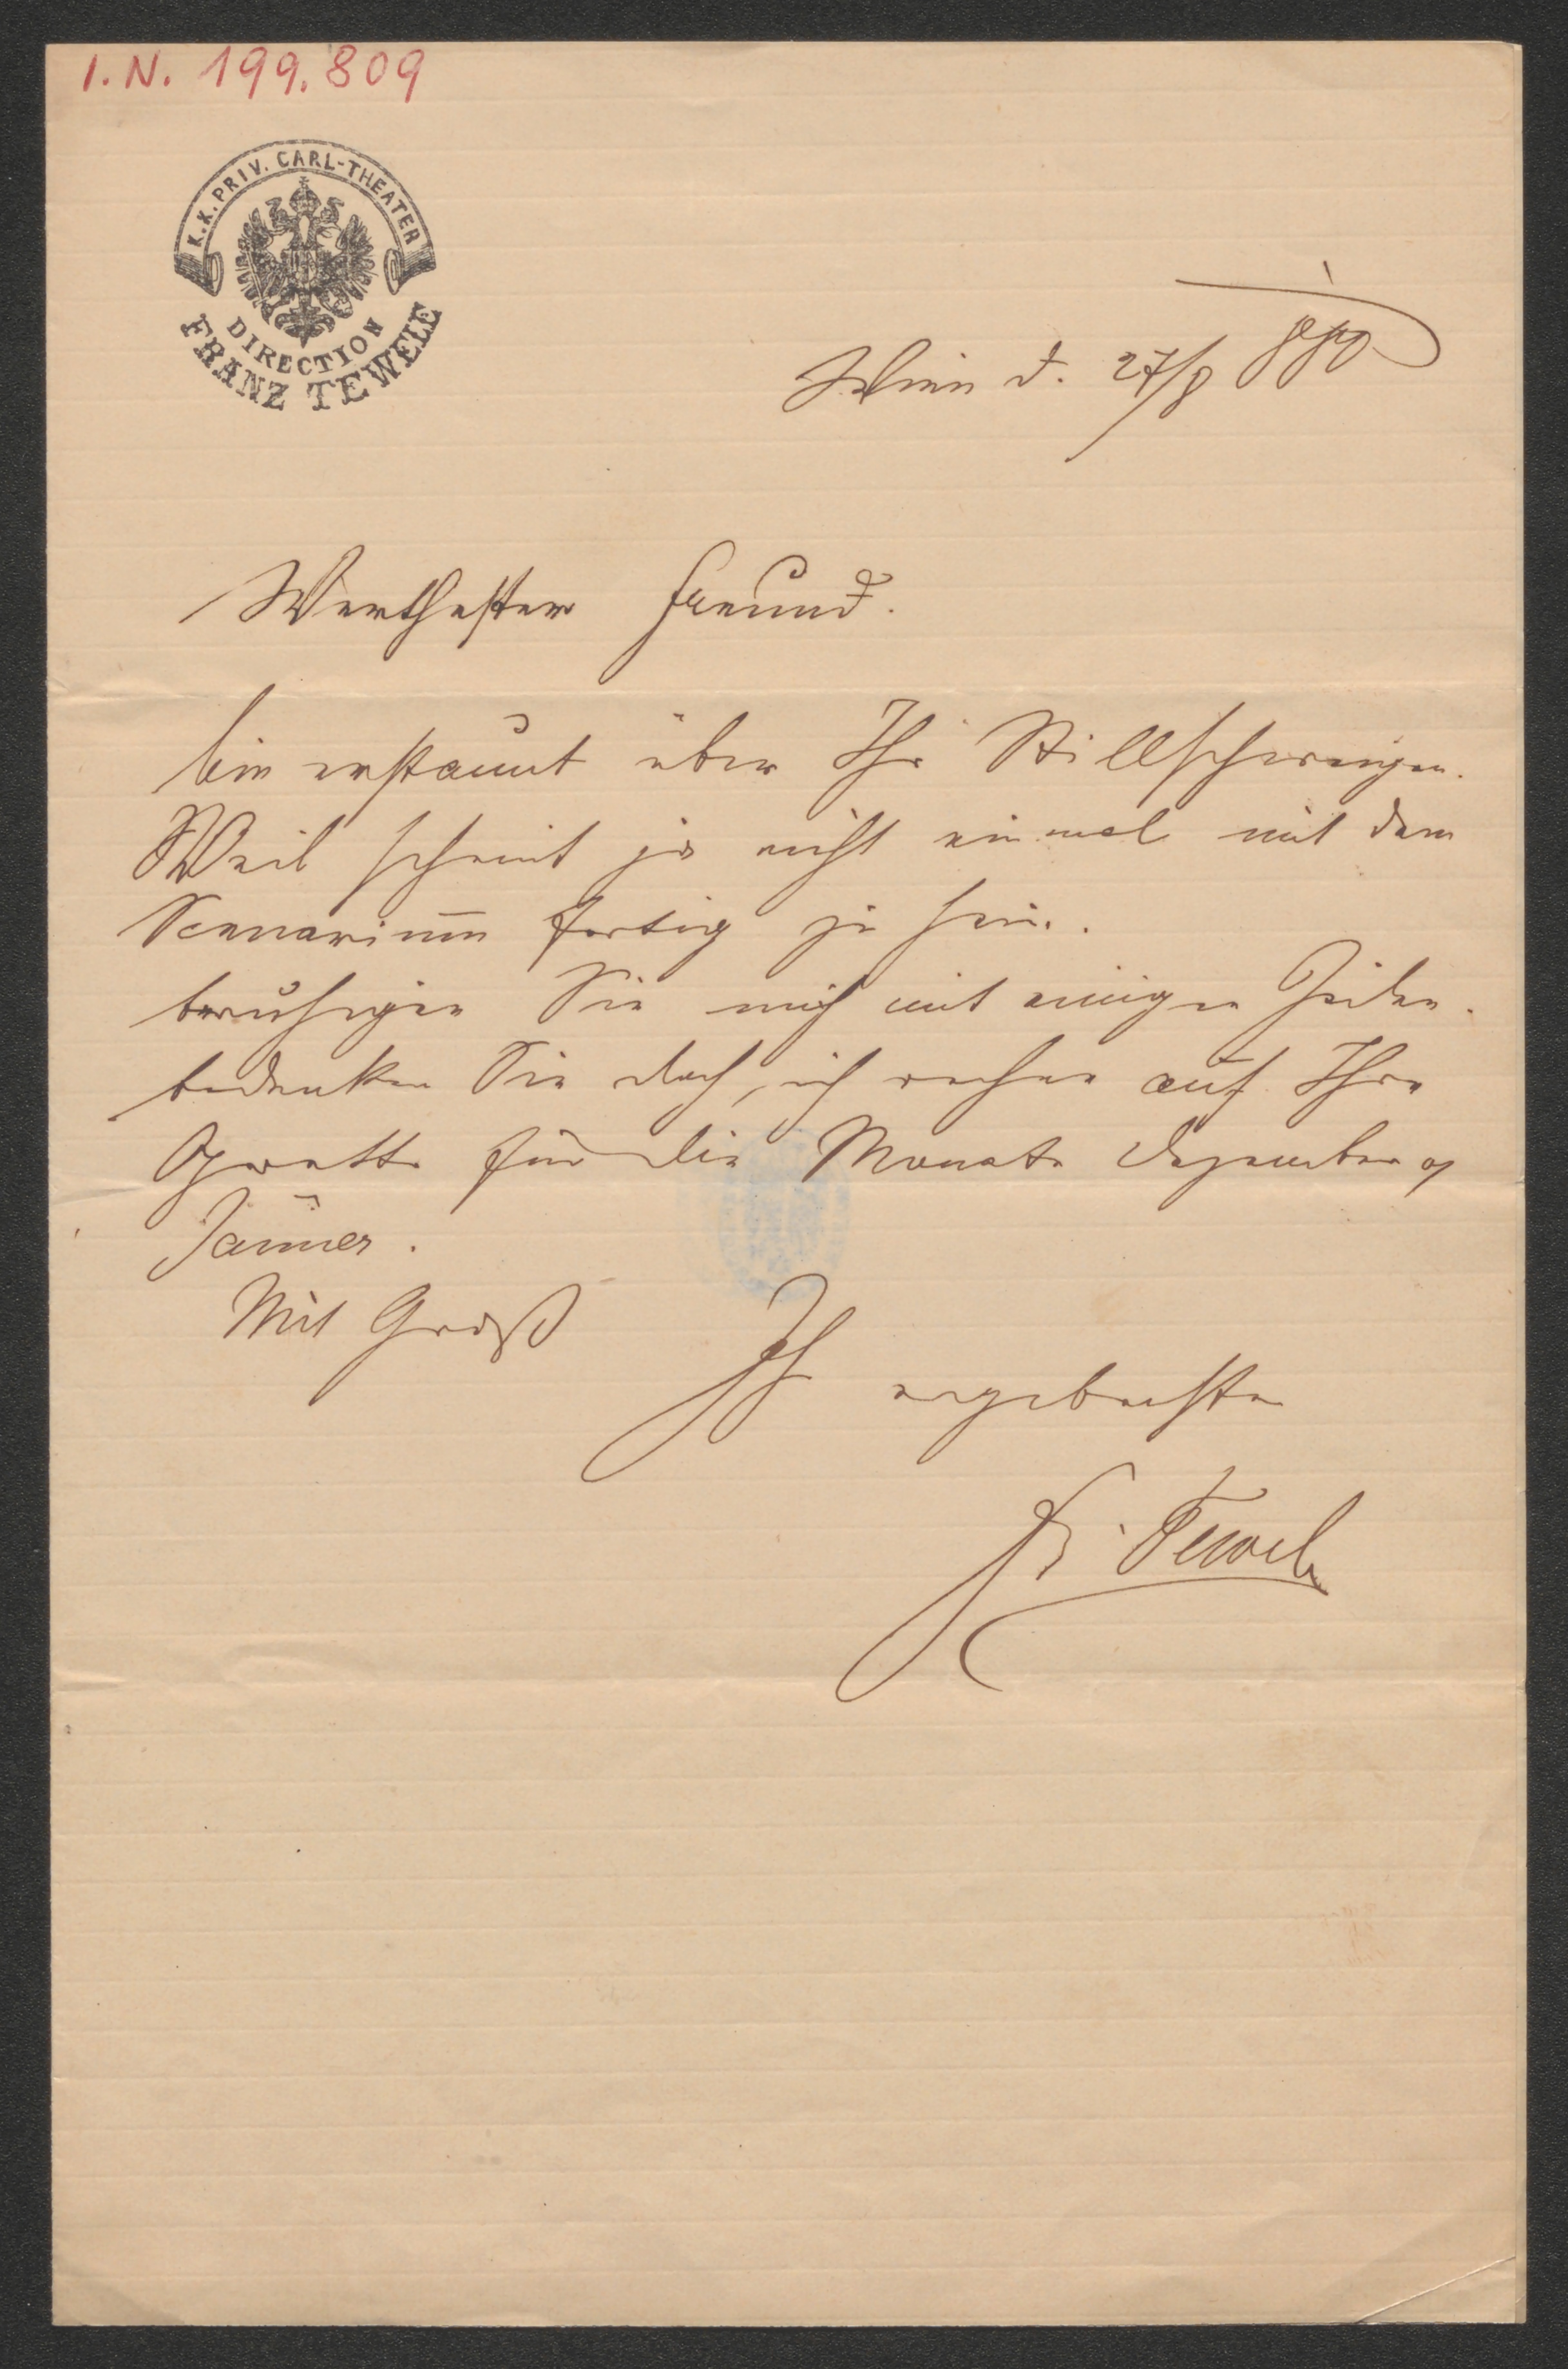 I. N. 199.809
K. K. PRIV. CARL-THEATER
DIRECTION
FRANZ TEWELE
Wien d. 27/8 880
Werthester Freund.
bin erstaunt über Ihr Stillschweigen.
Weil scheint ja nicht einmal mit dem
Scenarium fertig zu sein.
beruhigen Sie mich mit einigen Zeilen.
bedenken Sie doch, ich rechne auf Ihre
Operette für die Monate Dezember &
Jänner.
Mit Gruß
Ihr ergebenster
Fr. Tewele